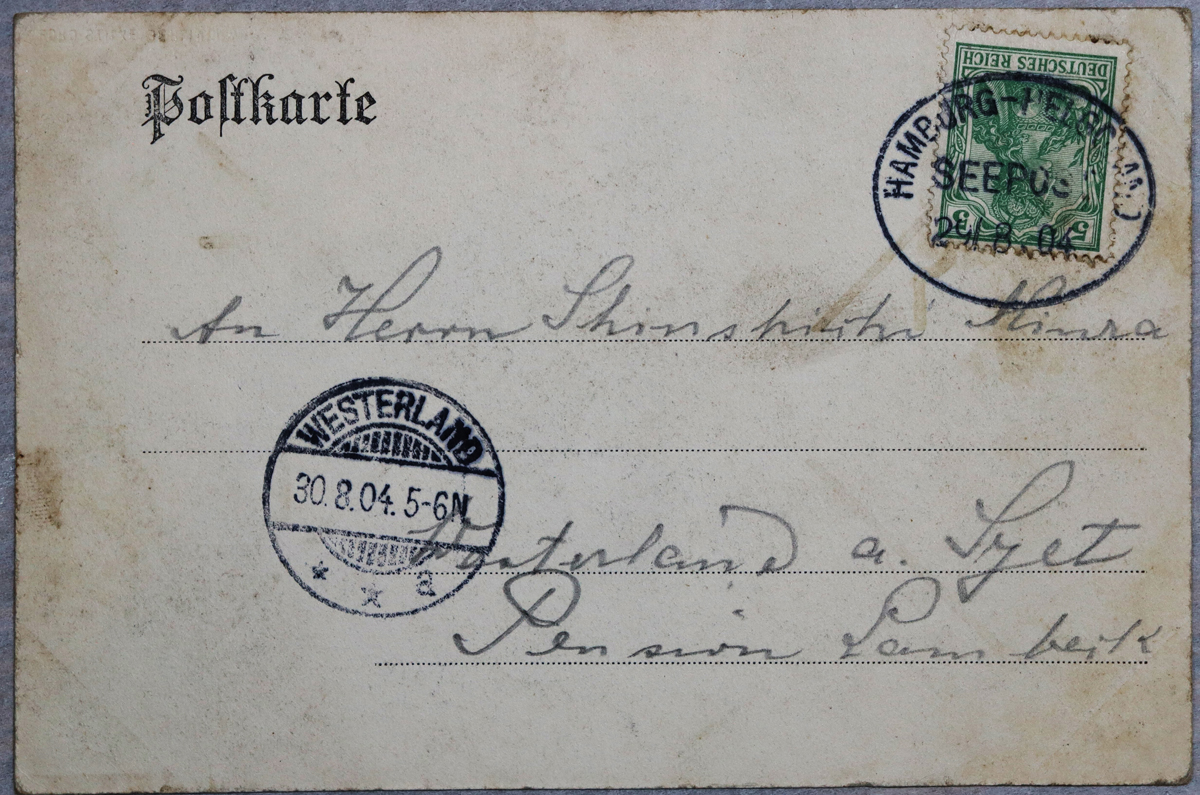 Postkarte
DEUTSCHES REICH
5 5
HAMBURG-HELGOLAND
SEEPOST
29.8.04
An Herrn Shinshichi Miura
WESTERLAND
30.8.04.5-6N
* * a
Westerland a. Sylt
Pension Lambeck